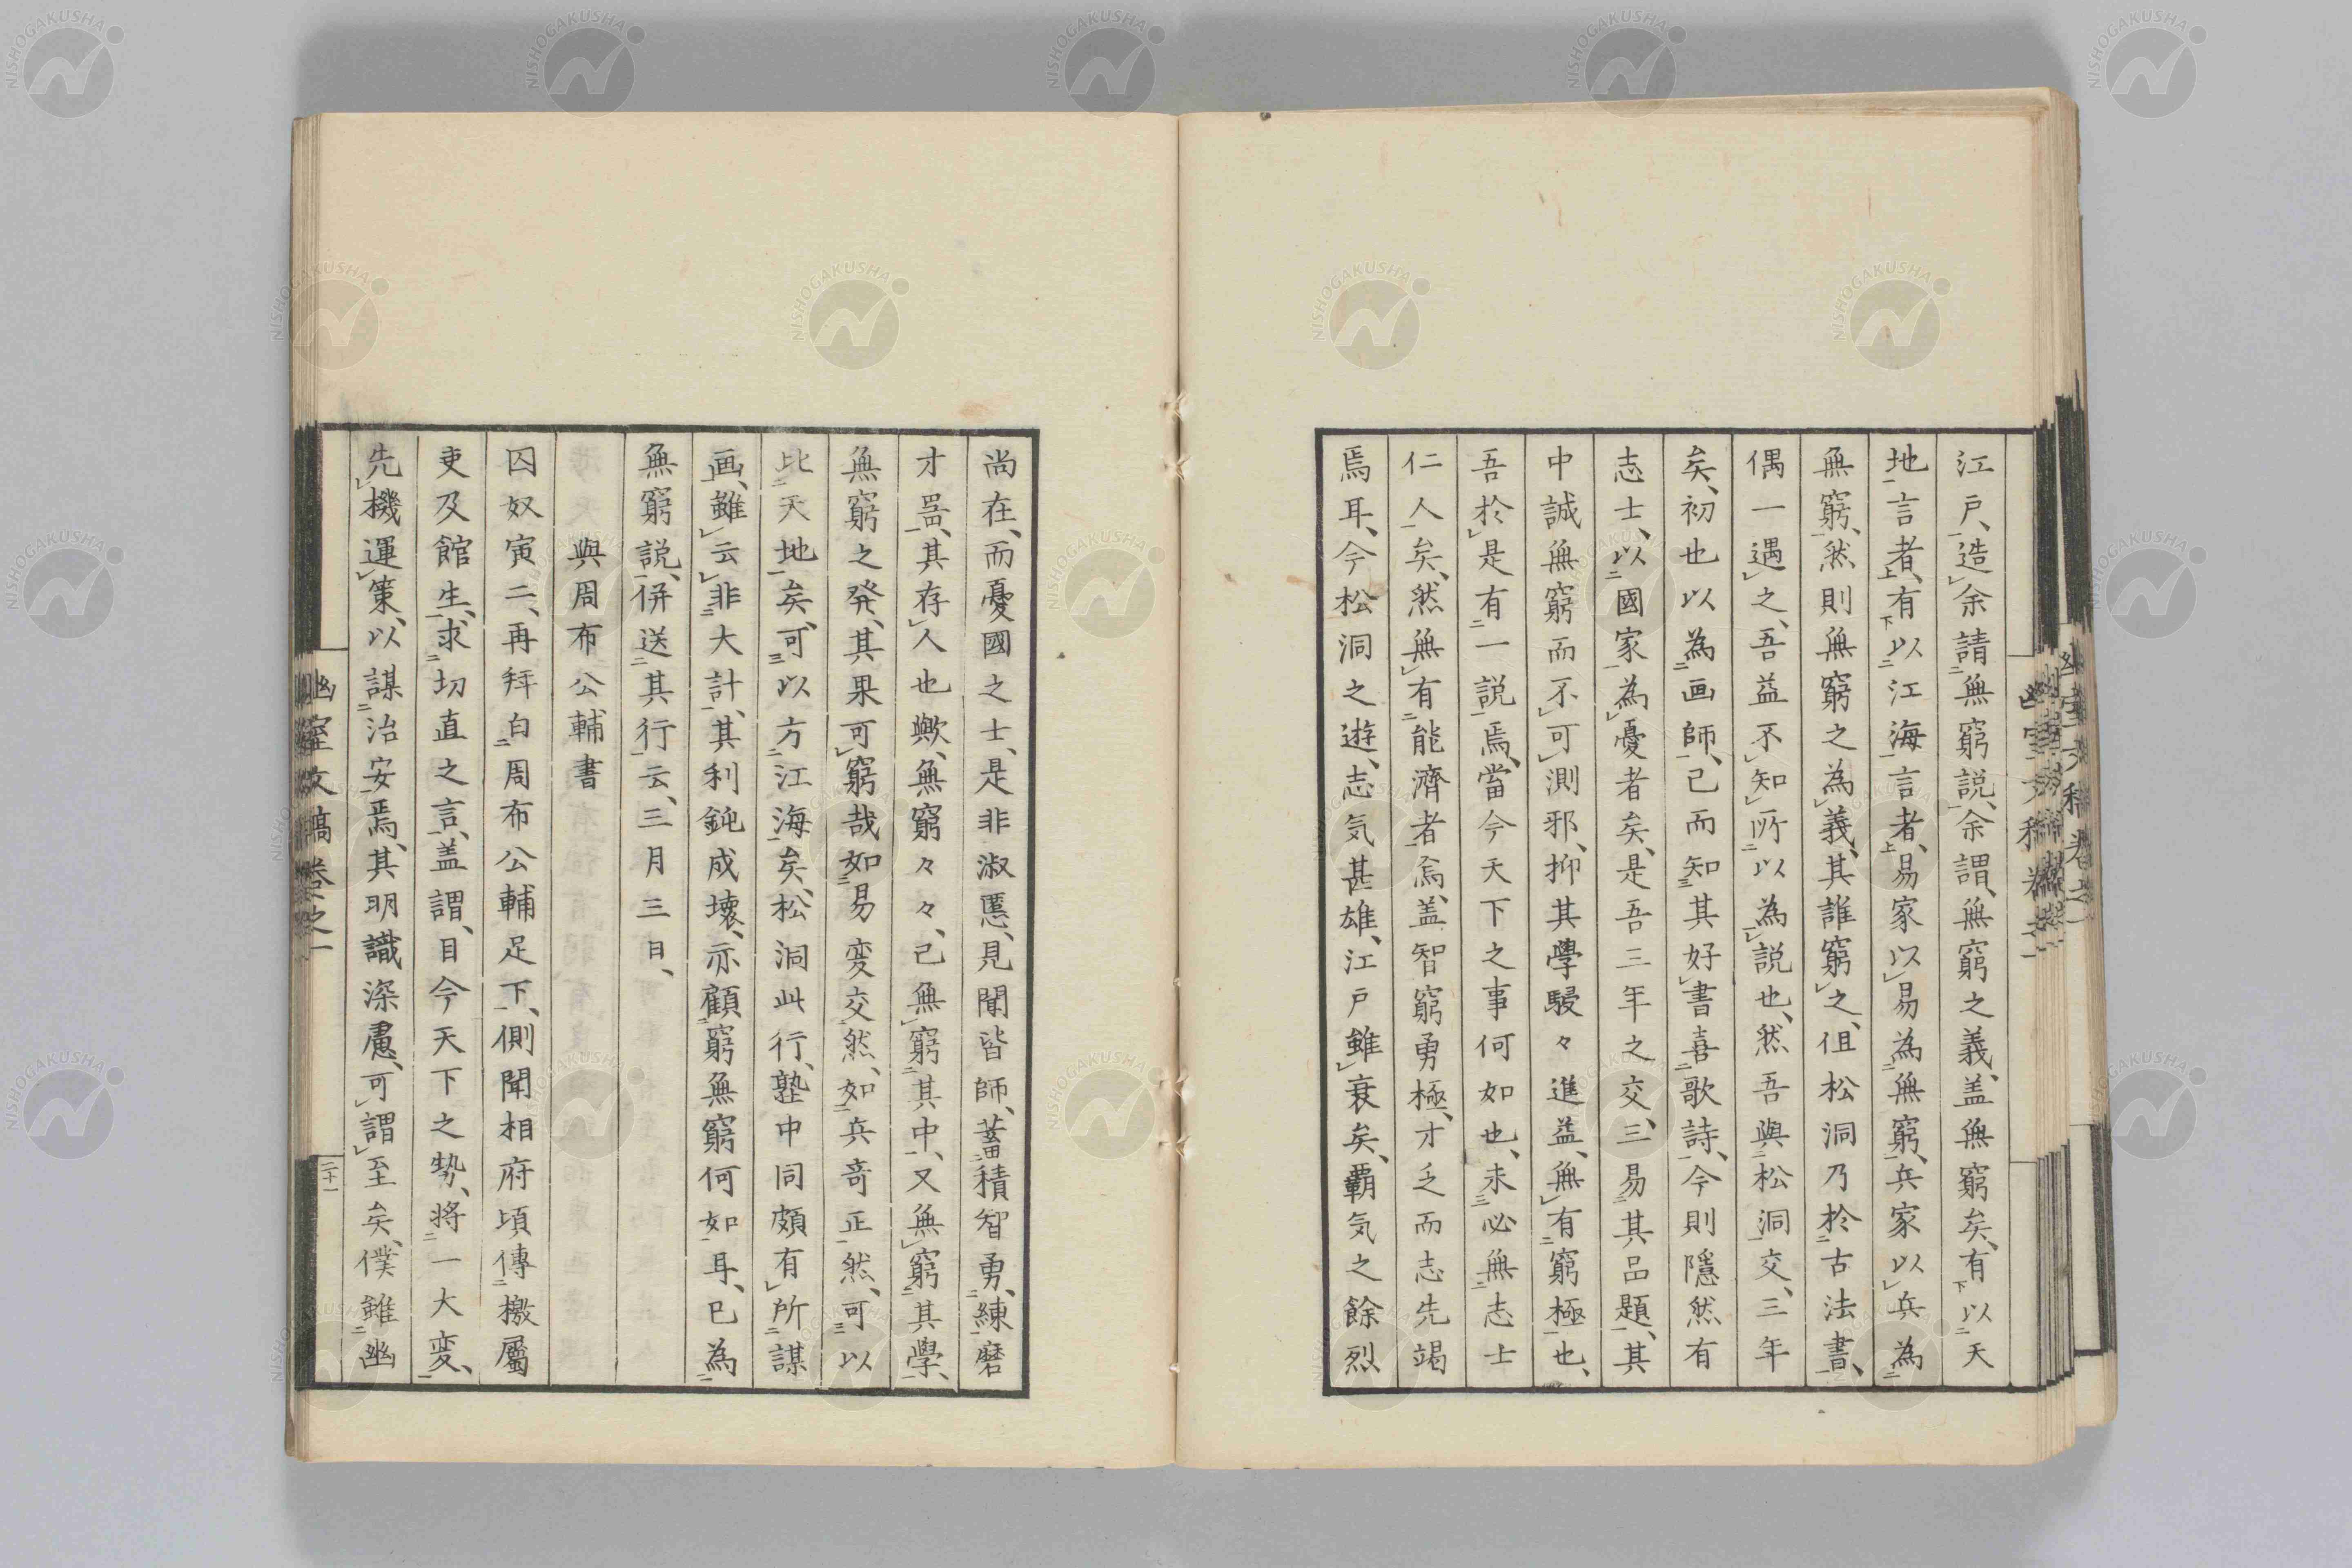 江戸、造余請無窮説、余謂、無窮之義、盖無窮矣、有以天
地言者、有以江海言者、易家以易為無窮、兵家以兵為
無窮、然則無窮之為義、其誰窮之、但松洞乃於古法書、
偶一遇之、吾益不知所以為説也、然吾與松洞交、三年
矣、初也以為画師、已而知其好書喜歌詩、今則隠然有
志士、以國家為憂者矣、是吾三年之交、三易其品題、其
中誠無窮而不可測邪、抑其學駸々進益、無有窮極也、
吾於是有一説焉、當今天下之事何如也、未必無志士
仁人矣、然無有能濟者焉、盖智窮勇極、才乏而志先竭
焉耳、今松洞之遊、志気甚雄、江戸雖衰矣、覇気之餘烈
尚在、而憂國之士、是非淑慝、見聞皆師、蓄積智勇、練磨
才噐、其存人也歟、無窮々々、已無窮其中、又無窮其學、
無窮之発、其果可窮哉、如易変交然、如兵奇正然、可以
比天地矣、可以方江海矣、松洞此行、塾中同頗有所謀
画、雖云非大計、其利鈍成壊、亦顧窮無窮何如耳、已為
無窮説、併送其行云、三月三日、
與周布公輔書
囚奴寅二、再拜白周布公輔足下、側聞相府頃傳檄屬
吏及館生、求切直之言、盖謂、目今天下之勢、将一大変、
先機運策、以謀治安焉、其明識深慮、可謂至矣、僕雖幽
幽室文稿巻之一
二十一
NISHOGAKUSHA